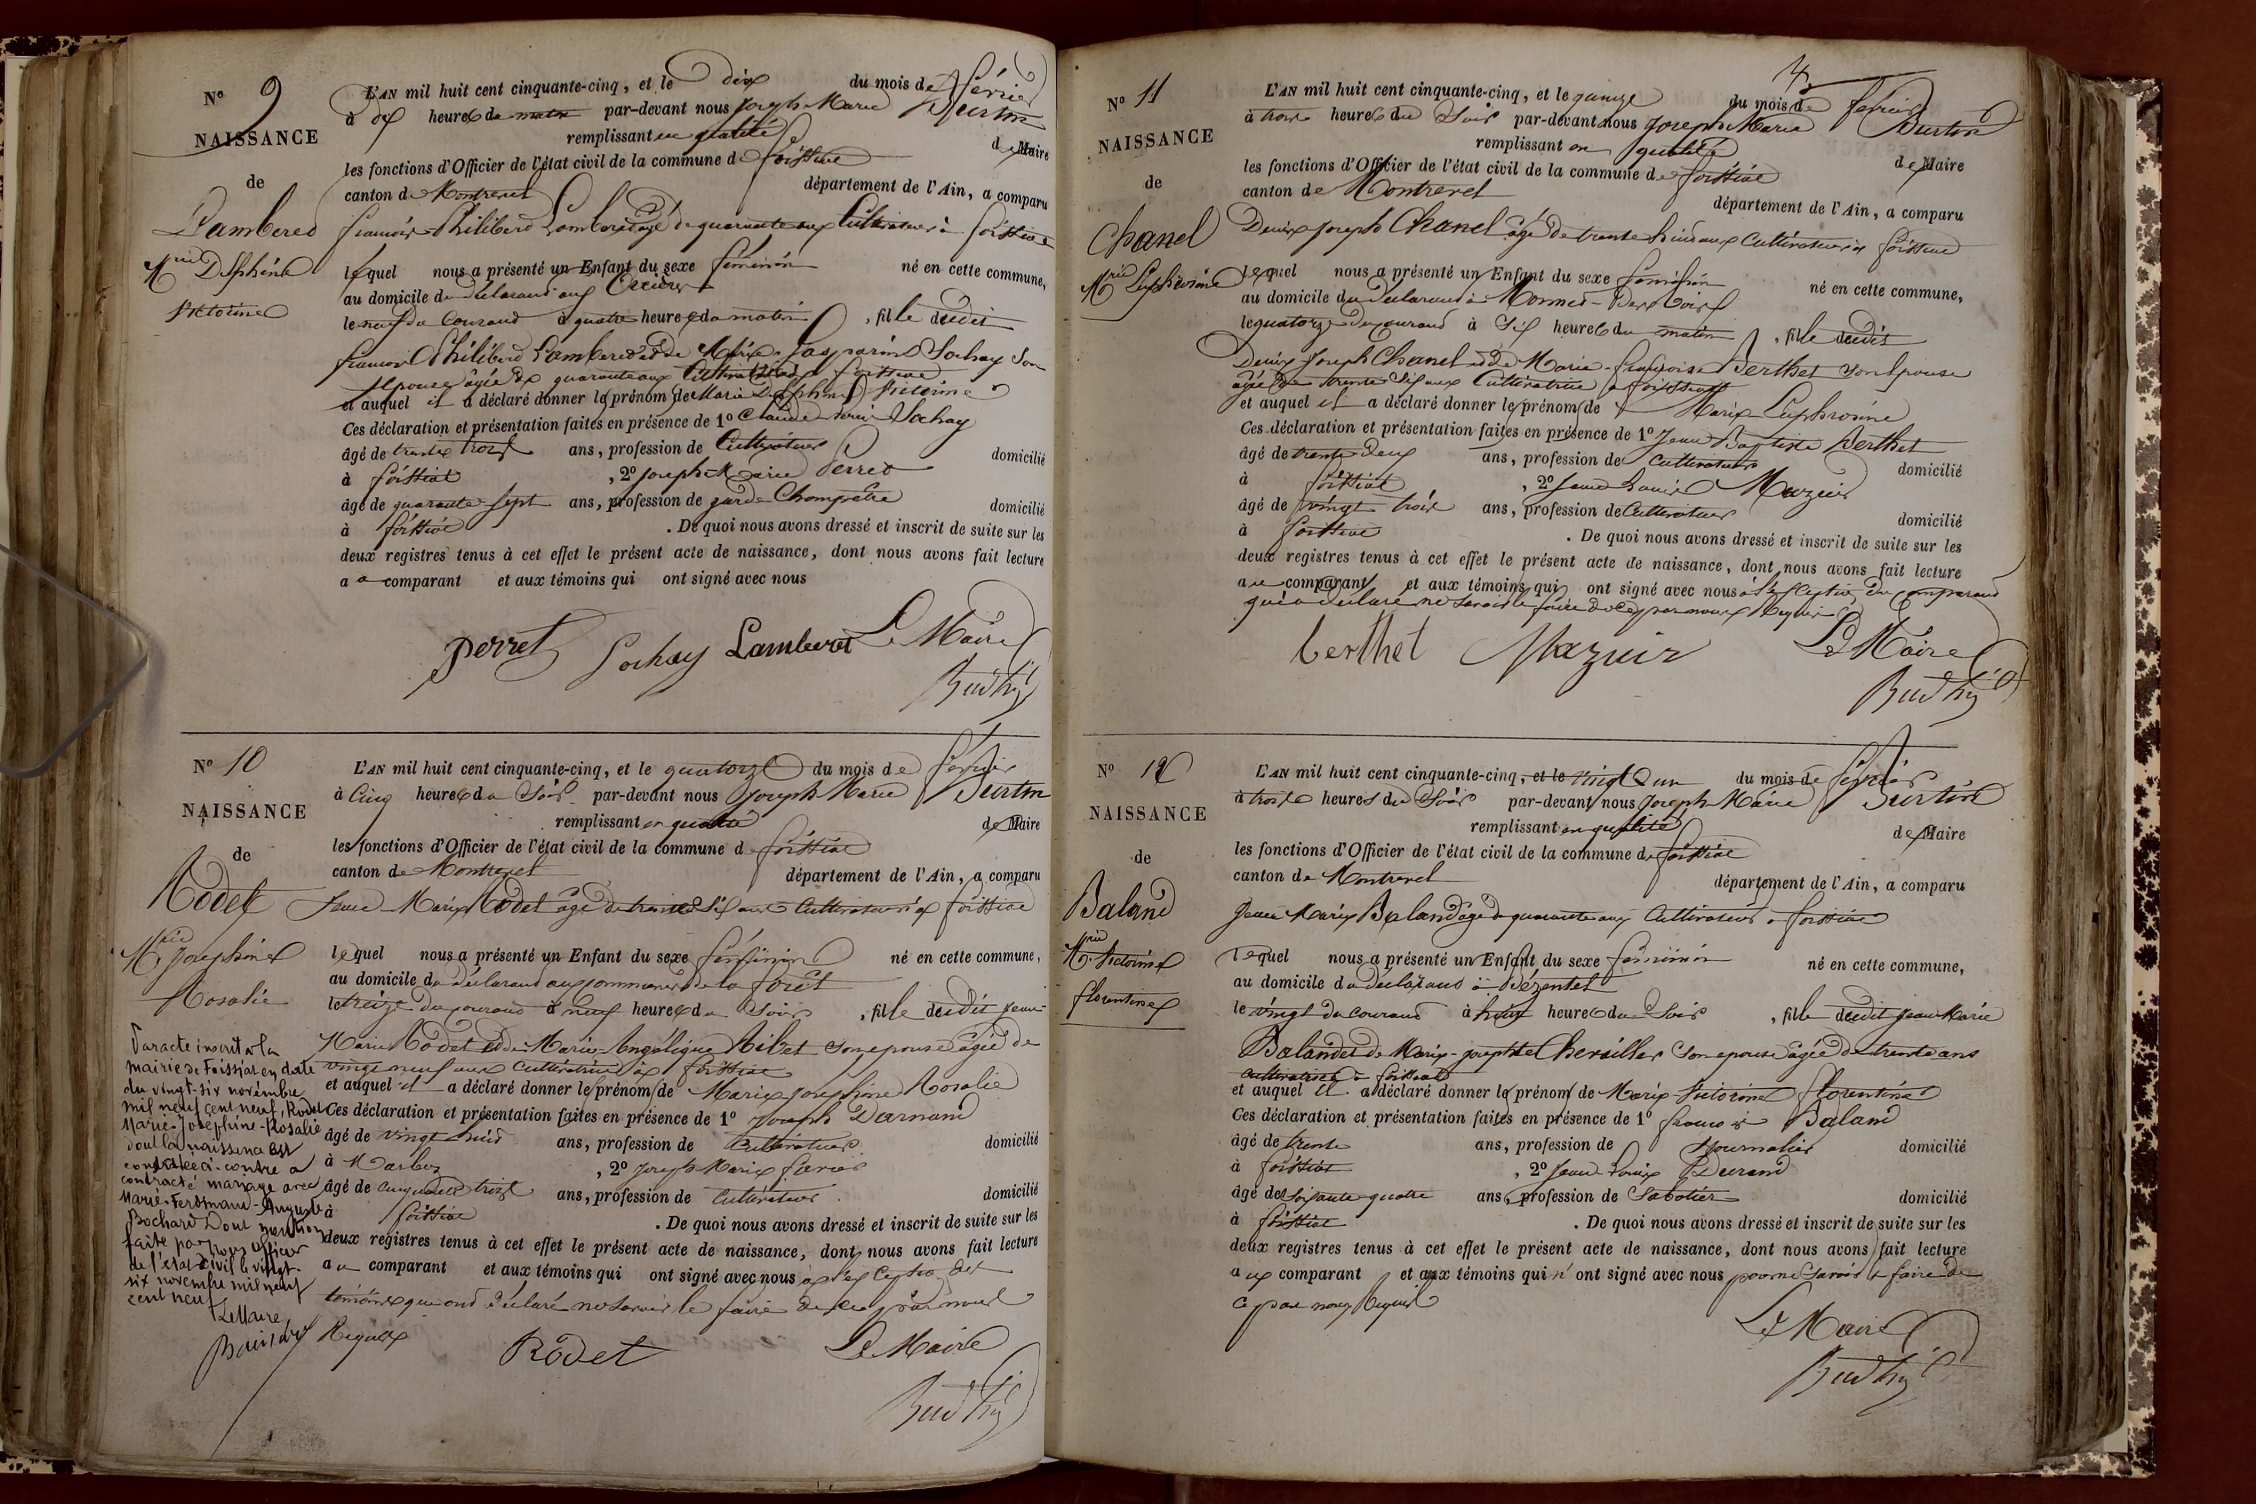 N° 9
NAISSANCE
de
Lamberet
Mie Delphine
Victorine
L'AN mil huit cent cinquante-cinq, et le dix du mois de février
à dix heures du matin par-devant nous Joseph Marie Burtin
remplissant en qualité de Maire
les fonctions d'Officier de l'état civil de la commune de foissiat
canton de Montrevel département de l'Ain, a comparu
françois Philibert Lamberet âgé de quarante ans Cultivateur à foissiat
lequel nous a présenté un Enfant du sexe féminin né en cette commune,
au domicile du déclarant aux
le neuf du Courant à quatre heures du matin, fille dudit
françois Philibert Lamberet et de Marie Gasparine Sochay Son
Epouse âgée de quarante ans Cultivatrice à foissiat
et auquel il a déclaré donner les prénoms de Marie Delphine Victorine
Ces déclaration et présentation faites en présence de 1° Claude Marie Sochay
âgé de trente trois ans, profession de Cultivateur domicilié
à foissiat, 2° Joseph Marie Perret
âgé de quarante sept ans, profession de garde Champêtre domicilié
à foissiat. De quoi nous avons dressé et inscrit de suite sur les
deux registres tenus à cet effet le présent acte de naissance, dont nous avons fait lecture
au comparant et aux témoins qui ont signé avec nous
Perret Sochay Lamberet Le Maire
Burtin
N° 10
NAISSANCE
de
Rodet
Mie Joséphine
Rosalie
L'AN mil huit cent cinquante-cinq, et le quatorze du mois de février
à Cinq heures du Soir par-devant nous Joseph Marie Burtin
remplissant en qualité de Maire
les fonctions d'Officier de l'état civil de la commune de foissiat
canton de Montrevel département de l'Ain, a comparu
Jean Marie Rodet âgé de trente Six ans Cultivateur à foissiat
lequel nous a présenté un Enfant du sexe féminin né en cette commune,
au domicile du déclarant aux communes de la forêt
le treize du courant à neuf heures du Soir, fille dudit Jean
Marie Rodet et de Marie Angélique Ribet Son epouse âgée de
vingt neuf ans Cultivatrice à foissiat
et auquel il a déclaré donner les prénoms de Marie Joséphine Rosalie
Ces déclaration et présentation faites en présence de 1° Joseph Darnand
âgé de vingt neuf ans, profession de Cultivateur domicilié
à Marboz, 2° Joseph Marie
âgé de cinquante trois ans, profession de Cultivateur domicilié
à foissiat. De quoi nous avons dressé et inscrit de suite sur les
deux registres tenus à cet effet le présent acte de naissance, dont nous avons fait lecture
au comparant et aux témoins qui ont signé avec nous à l'exception des
témoins qui ont déclaré ne savoir le faire de ce par nous
Requis
Rodet Le Maire
Burtin
Par acte inscrit à la
mairie de Foissiat en date
du vingt-six novembre
mil neuf cent neuf, Rodet
Marie-Joséphine-Rosalie
dont la naissance est
constatée ci-contre a
contracté mariage avec
Marie-Ferdinand-Auguste
Bochard Dont mention
faite par nous officier
de l'état civil le vingt-
six novembre mil neuf
cent neuf
Le Maire,
N° 11
NAISSANCE
de
Chanel
Mie Euphrosine
L'AN mil huit cent cinquante-cinq, et le quinze du mois de février
à trois heures du Soir par-devant nous Joseph Marie Burtin
remplissant en qualité de Maire
les fonctions d'Officier de l'état civil de la commune de foissiat
canton de Montrevel département de l'Ain, a comparu
Denis Joseph Chanel âgé de trente huit ans Cultivateur à foissiat
lequel nous a présenté un Enfant du sexe féminin né en cette commune,
au domicile du déclarant à
le quatorze du courant à Six heures du matin, fille dudit
Denis Joseph Chanel et de Marie françoise Berthet Son Epouse
âgée de trente Six ans Cultivatrice à foissiat
et auquel il a déclaré donner les prénoms de Marie Euphrosine
Ces déclaration et présentation faites en présence de 1° Jean Baptiste Berthet
âgé de trente deux ans, profession de Cultivateur domicilié
à foissiat, 2° Jean Louis Mazuir
âgé de vingt trois ans, profession de Cultivateur domicilié
à foissiat. De quoi nous avons dressé et inscrit de suite sur les
deux registres tenus à cet effet le présent acte de naissance, dont nous avons fait lecture
au comparant et aux témoins qui ont signé avec nous à l'exception du comparant
qui a déclaré ne savoir le faire de ce par nous Requis
berthet Mazuir Le Maire
Burtin
N° 12
NAISSANCE
de
Baland
Mie Victorine
florentine
L'AN mil huit cent cinquante-cinq, et le vingt un du mois de février
à trois heures du Soir par-devant nous Joseph Marie Burtin
remplissant en qualité de Maire
les fonctions d'Officier de l'état civil de la commune de foissiat
canton de Montrevel département de l'Ain, a comparu
Jean Marie Baland âgé de quarante ans Cultivateur à foissiat
lequel nous a présenté un Enfant du sexe féminin né en cette commune,
au domicile du déclarant à Bézentet
le vingt du courant à huit heures du Soir, fille dudit Jean Marie
Baland et de Marie-josephte Chevillar Son epouse âgée de trente ans
cultivatrice à foissiat
et auquel il a déclaré donner les prénoms de Marie Victorine florentine
Ces déclaration et présentation faites en présence de 1° francois Baland
âgé de trente ans, profession de Journalier domicilié
à foissiat, 2° Jean Louis Durand
âgé de Soixante quatre ans, profession de Sabotier domicilié
à foissiat. De quoi nous avons dressé et inscrit de suite sur les
deux registres tenus à cet effet le présent acte de naissance, dont nous avons fait lecture
aux comparant et aux témoins qui n'ont signé avec nous pour ne Savoir le faire de
ce par nous Requis
Le Maire
Burtin